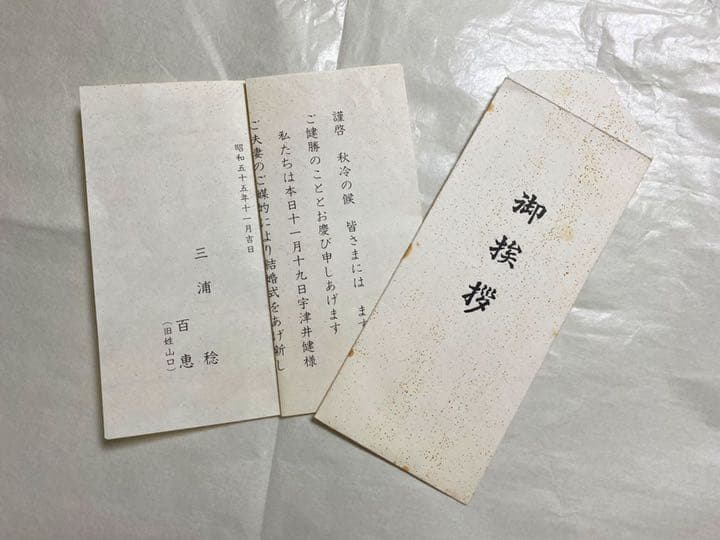 謹啓　秋冷の候　皆さまには　ます
ご健勝のこととお慶び申しあげます
私たちは本日十一月十九日宇津井健様
ご夫妻のご媒酌により結婚式をあげ新し
昭和五十五年十一月吉日
三浦　稔
百恵
（旧姓山口）
御挨拶